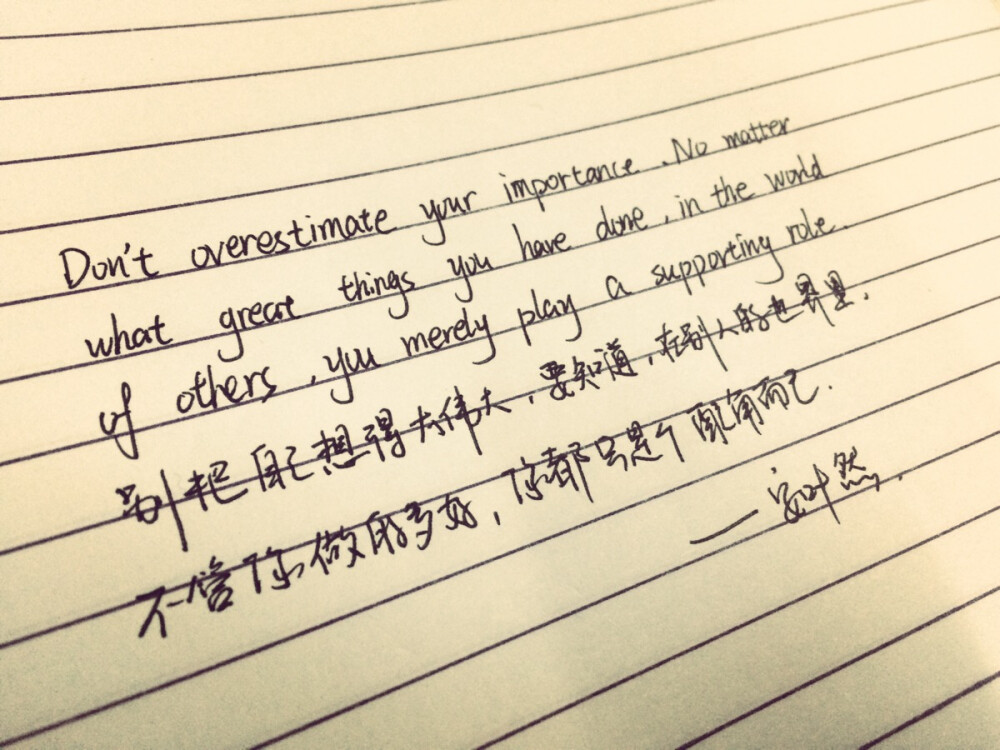 Don't overestimate your importance. No matter
what great things you have done, in the world
of others, you merely play a supporting role.
别把自己想得太伟大,要知道,在别人的世界里.
不管你做的多好,你都只是个配角而已.
—安叶然.